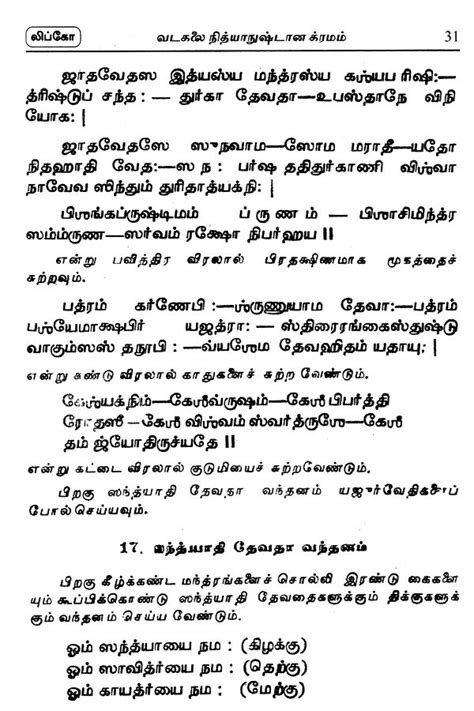 லிப்கோ வடகலை நித்யாநுஷ்டான க்ரமம் 31
ஜாதவேதஸ இத்யஸ்ய மந்த்ரஸ்ய கஶ்யப ரிஷி:—
த்ரிஷ்டுப் சந்த : — துர்கா தேவதா—உபஸ்தாநே விநி
யோக: |
ஜாதவேதஸே ஸுநவாம—ஸோம மராதீ—யதோ
நிதஹாதி வேத:—ஸ ந : பர்ஷ ததிதுர்காணி விஶ்வா
நாவேவ ஸிந்தும் துரிதாத்யக்நி: |
பிஶங்கப்ருஷ்டிமம் ப்ருணம் — பிஶாசிமிந்த்ர
ஸம்ம்ருண—ஸர்வம் ரக்ஷோ நிபர்ஹய ||
என்று பவித்திர விரலால் பிரதக்ஷிணமாக முகத்தைச்
சுற்றவும்.
பத்ரம் கர்ணேபி :—ஶ்ருணுயாம தேவா:—பத்ரம்
பஶ்யேமாக்ஷபிர் யஜத்ரா: — ஸ்திரைரங்கைஸ்துஷ்டு
வாகும்ஸஸ் தநூபி : —வ்யஶேம தேவஹிதம் யதாயு: |
என்று சுண்டு விரலால் காதுகளைச் சுற்ற வேண்டும்.
கேஶ்யக்நிம்—கேஶீவ்ருஷம்—கேஶீ பிபர்த்தி
ரோதஸீ —கேஶீ விஶ்வம் ஸ்வர்த்ருஶே—கேஶீ
தம் ஜ்யோதிருச்யதே ||
என்று கட்டை விரலால் குடுமியைச் சுற்றவேண்டும்.
பிறகு ஸந்த்யாதி தேவதா வந்தனம் யஜுர்வேதிகளைப்
போல் செய்யவும்.
17. ஸந்த்யாதி தேவதா வந்தனம்
பிறகு கீழ்க்கண்ட மந்த்ரங்களைச் சொல்லி இரண்டு கைகளை
யும் கூப்பிக்கொண்டு ஸந்த்யாதி தேவதைகளுக்கும் திக்குகளுக்
கும் வந்தனம் செய்ய வேண்டும்.
ஓம் ஸந்த்யாயை நம : (கிழக்கு)
ஓம் ஸாவித்ர்யை நம : (தெற்கு)
ஓம் காயத்ர்யை நம : (மேற்கு)